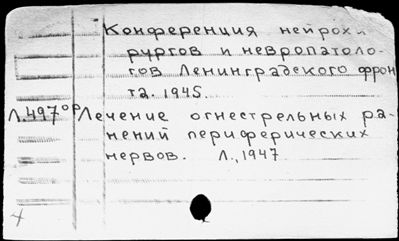 Конференция нейрохи
рургов и невропатоло-
гов Ленинградского фрон
та. 1945.
Л.497ор Лечение огнестрельных ра-
нений периферических
нервов. Л., 1947
4